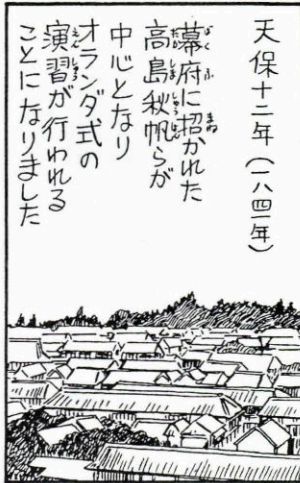 天保十二年(一八四一年)
幕府に招かれた
高島秋帆らが
中心となり
オランダ式の
演習が行われる
ことになりました